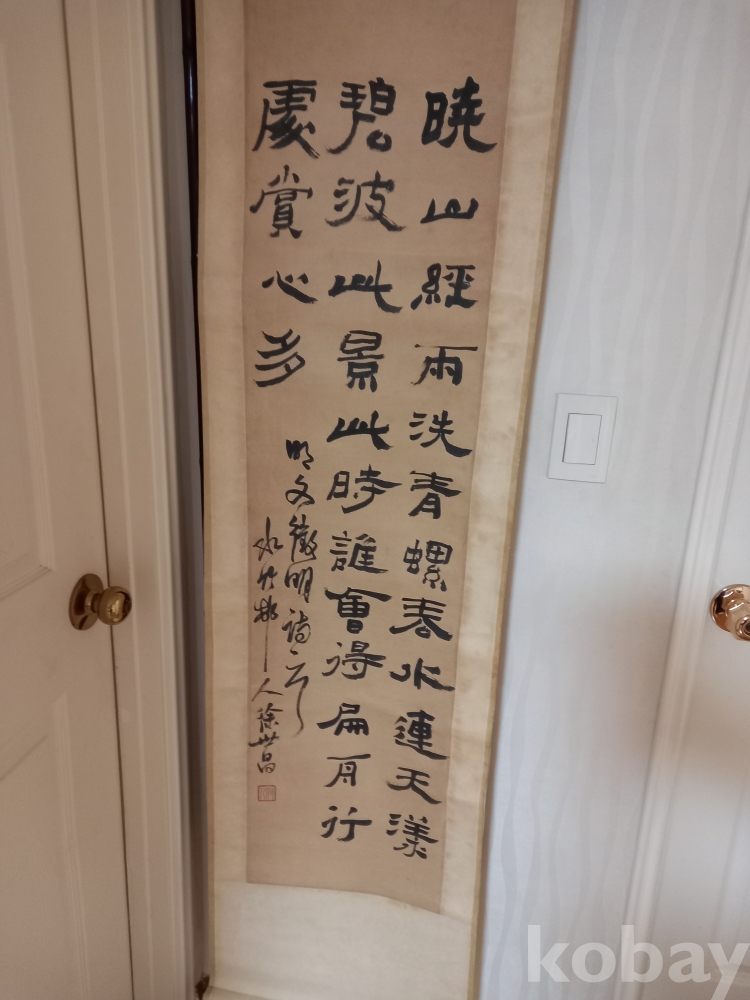 曉山經雨洗青螺春水連天漾
碧波此景此時誰會得扁舟行
處賞心多
明文徵明詩云
水竹邨人徐世昌
kobay